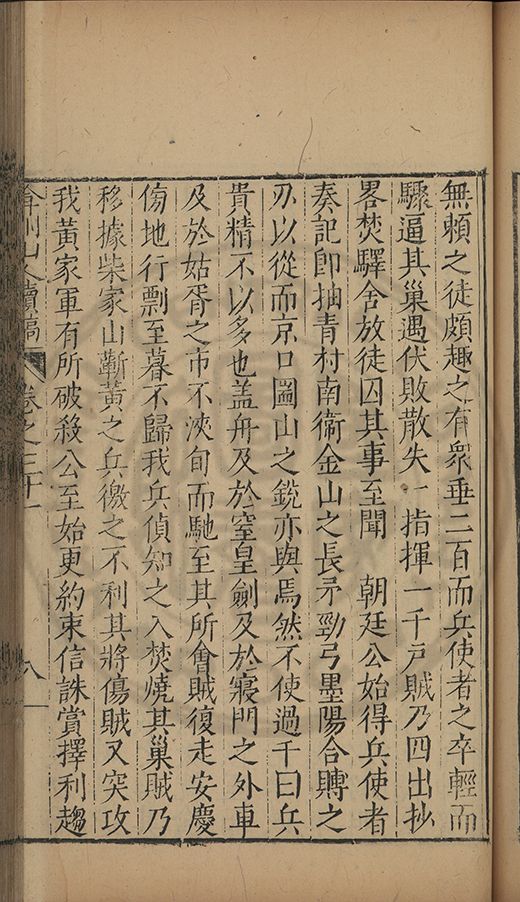 無賴之徒頗趣之有衆垂二百而兵使者之卒輕而
驟逼其巢遇伏敗散失一指揮一千戸賊乃四出抄
畧焚驛舍放徒囚其事至聞　朝廷公始得兵使者
奏記卽抽青村南衞金山之長矛勁弓墨陽合賻之
刅以從而京口圌山之銳亦與焉然不使過千曰兵
貴精不以多也盖舟及於窒皇劍及於寢門之外車
及於姑胥之市不浹旬而馳至其所會賊復走安慶
傍地行剽至暮不歸我兵偵知之入焚燒其巢賊乃
移據柴家山蘄黃之兵徼之不利其將傷賊又突攻
我黃家軍有所破殺公至始更約束信誅賞擇利趨
弇州山人續稿　卷之三十一　八